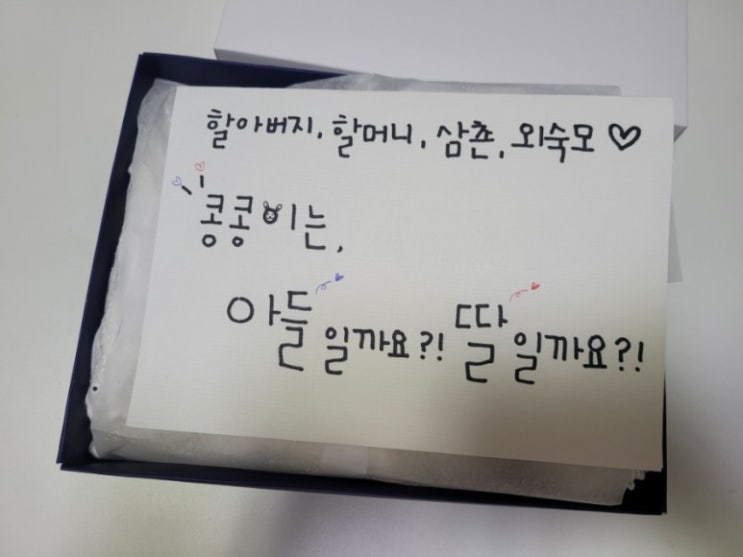 할아버지, 할머니, 삼촌, 외숙모♡
콩콩이는,
아들일까요?! 딸일까요?!